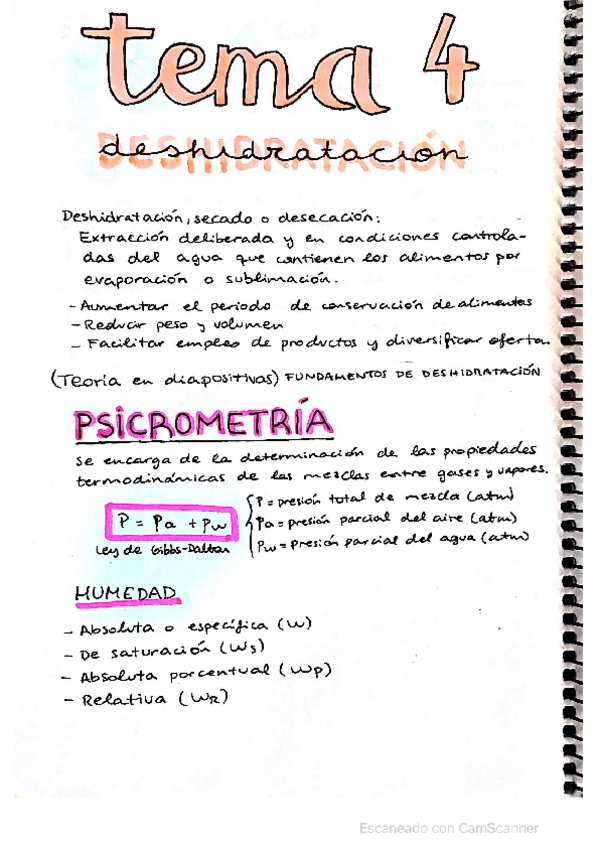 tema 4
DESHIDRATACIÓN
deshidratación
Deshidratación, secado o desecación:
Extracción deliberada y en condiciones controla-
das del agua que contienen los alimentos por
evaporación o sublimación.
- Aumentar el periodo de conservación de alimentos
- Reducir peso y volumen
- Facilitar empleo de productos y diversificar oferta
(Teoría en diapositivas) FUNDAMENTOS DE DESHIDRATACIÓN
PSICROMETRÍA
Se encarga de la determinación de las propiedades
termodinámicas de las mezclas entre gases y vapores.
P = Pa + Pw
Ley de Gibbs-Dalton
P = presión total de mezcla (atm)
Pa = presión parcial del aire (atm)
Pw = presión parcial del agua (atm)
HUMEDAD
- Absoluta o específica (W)
- De saturación (Ws)
- Absoluta porcentual (Wp)
- Relativa (WR)
Escaneado con CamScanner